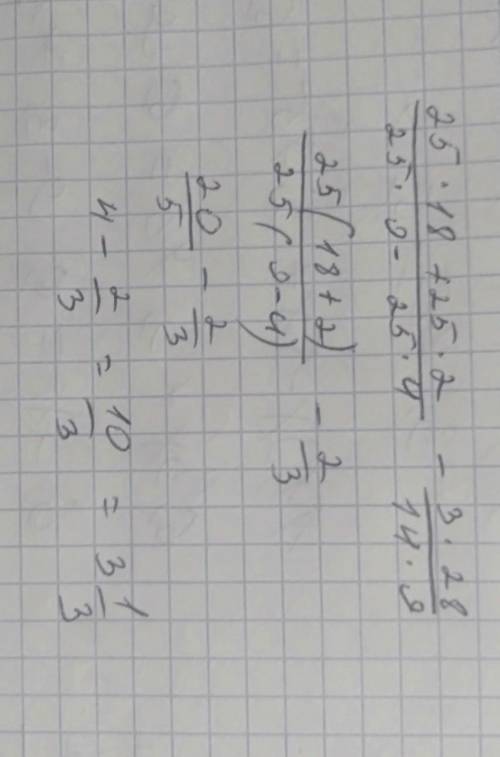 (25·18 + 25·2)/(25·9 - 25·4) - (3·28)/(14·9)
25(18+2)/25(9-4) - 2/3
20/5 - 2/3
4 - 2/3 = 10/3 = 3 1/3